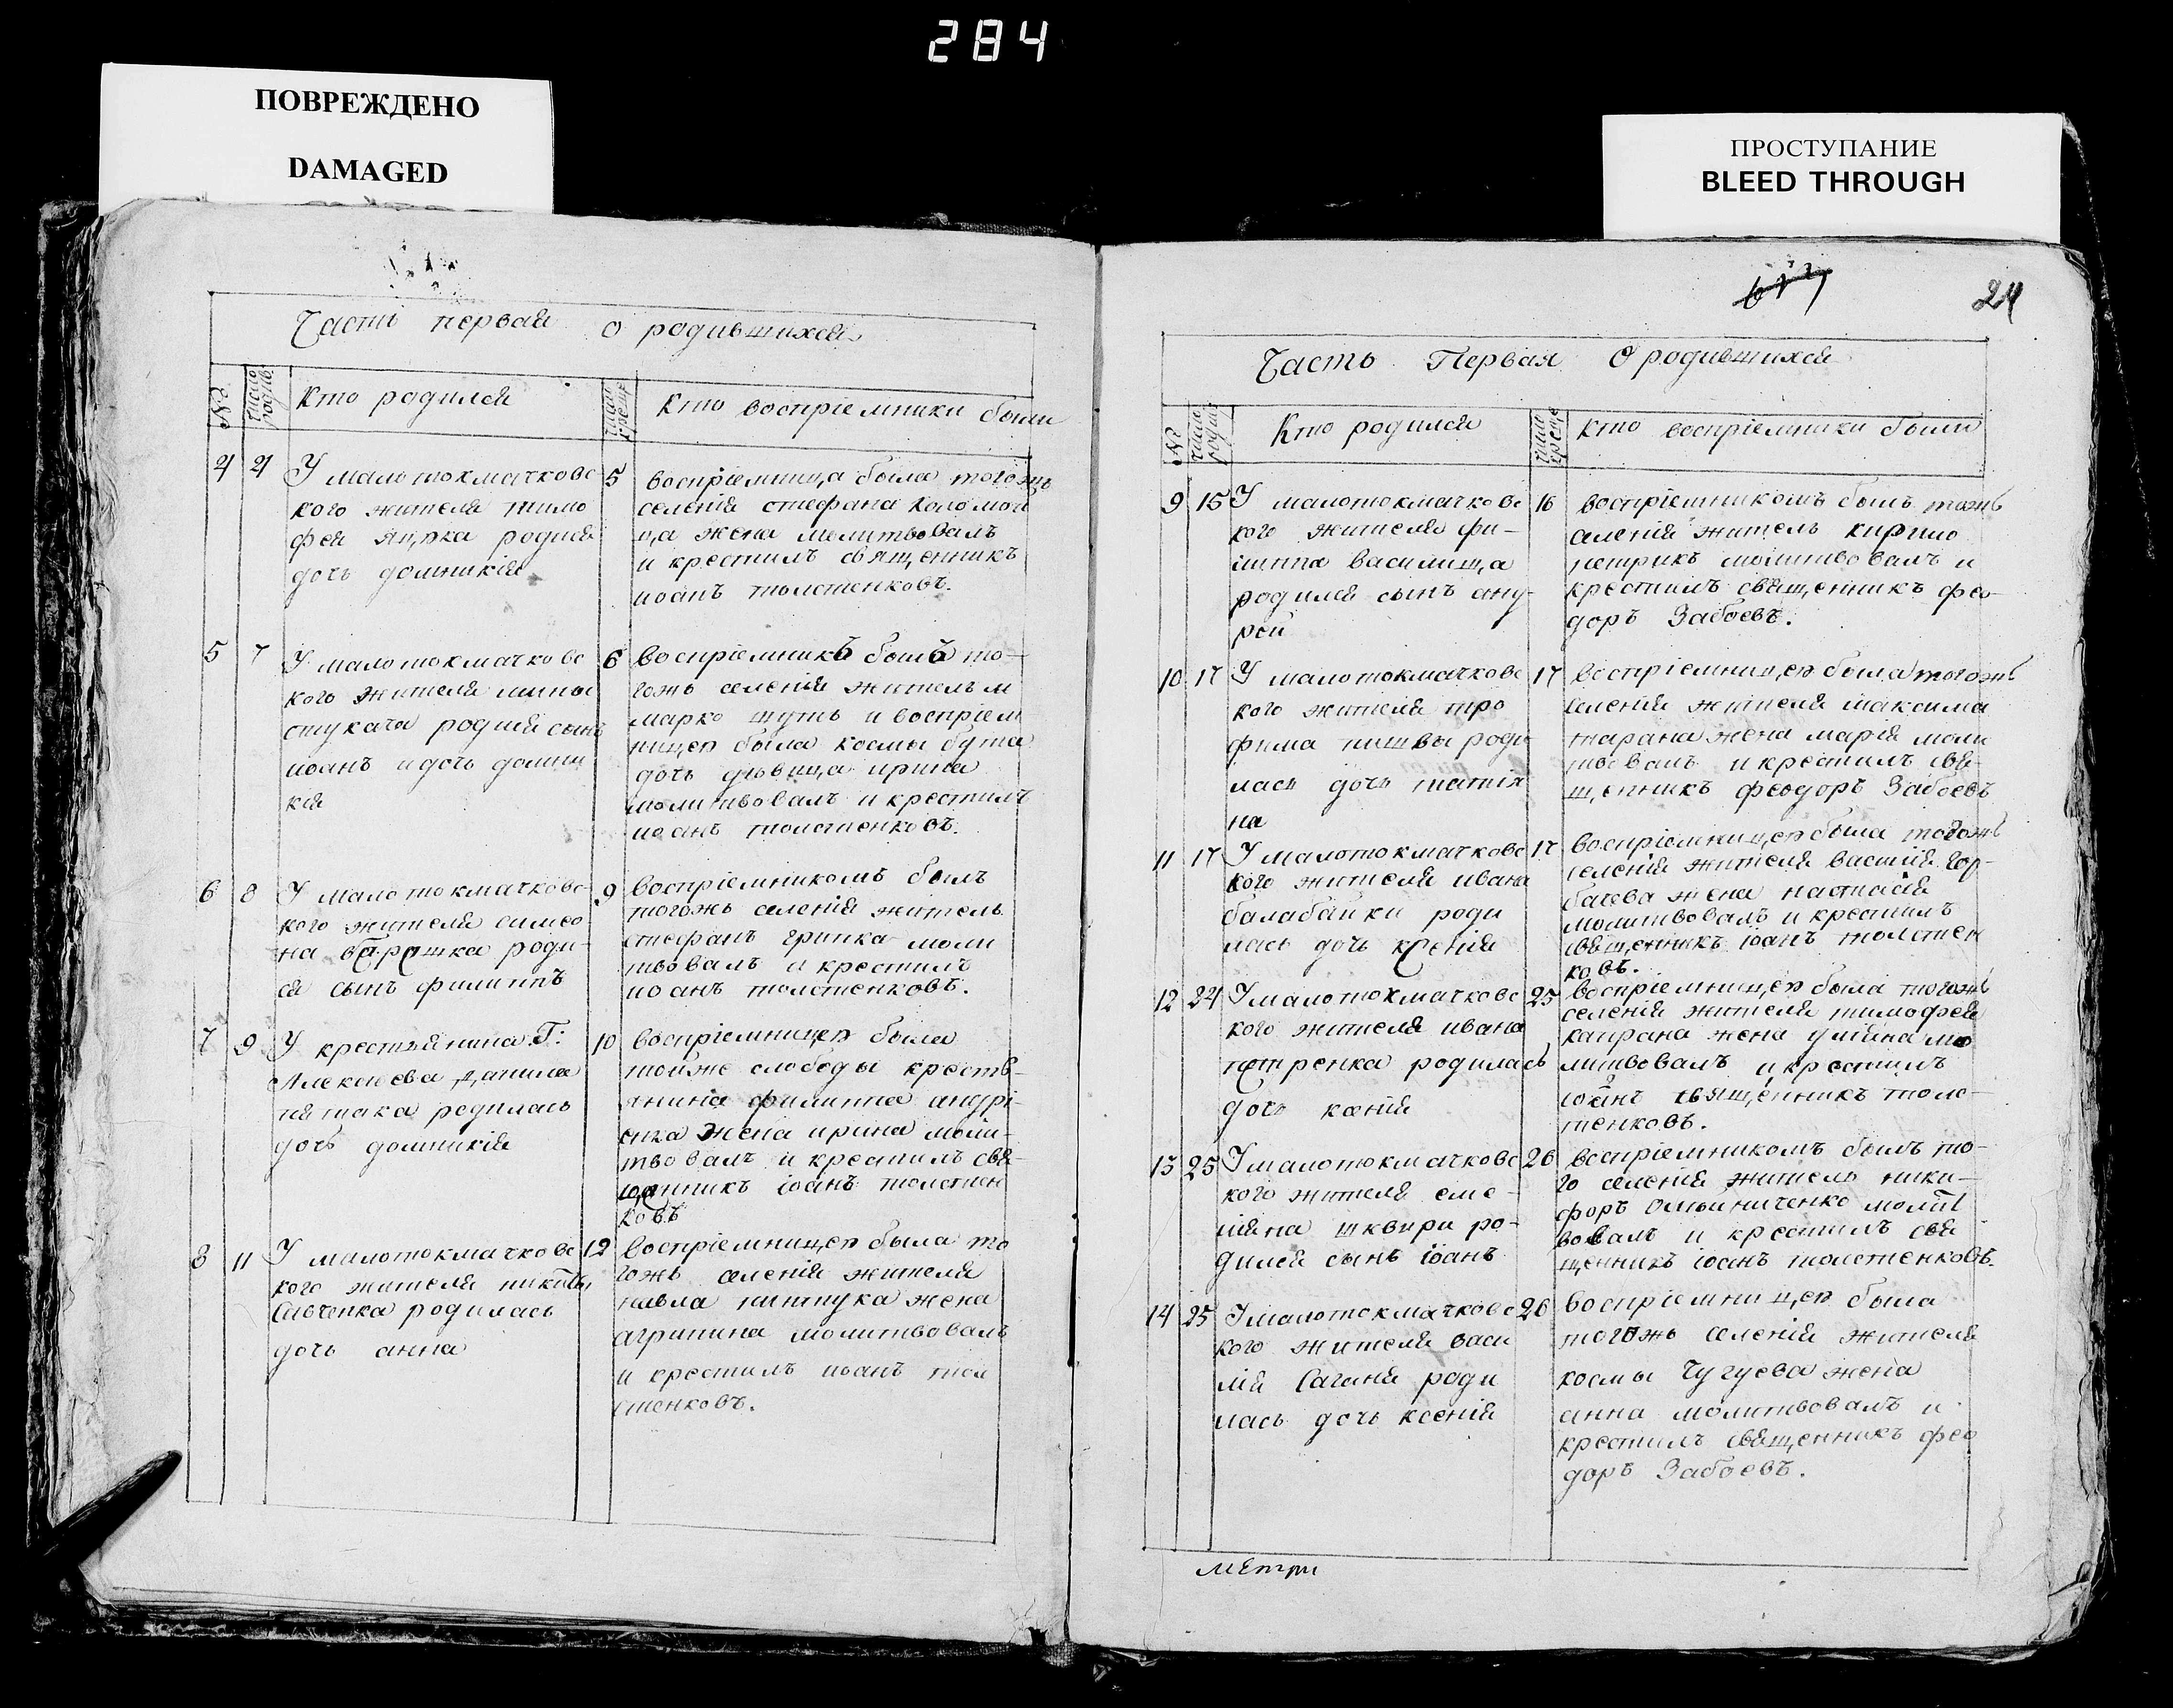 284
ПОВРЕЖДЕНО
DAMAGED
ПРОСТУПАНИЕ
BLEED THROUGH
Части первая о родившихся
№
число родив
Кто родился
число крещ
Кто воспріемники были
4 4
У малотокмачковс
кого жителя тимо
фея яцика родися
дочь домникія
5
воспріемница была тогожъ
селенія стефана коломой
ца жена молитвовалъ
и крестилъ священникъ
иоанъ толстенковъ.
5 7
У малотокмачковс
кого жителя
стукача родися сынъ
иоанъ и дочь домни
кія
6
воспріемникъ былъ то-
гожъ селенія жителъ м
марко шутъ и воспріем
ницею была космы бута
дочь девица ирина
молитвовалъ и крестилъ
иоанъ толстенковъ.
6 8
У малотокмачковс
кого жителя симео
на варошка роди-
ся сынъ филиппъ
9
воспріемникомъ былъ
тогожъ селенія житель
стефанъ гринка моли
твовалъ и крестилъ
иоанъ толстенковъ.
7 9
У крестьянина Г:
Алексеева данила
родилась
дочь домникія
10
воспріемницею была
тойже слободы кресть-
янина филиппа андрі-
енка жена ирина моли-
твовалъ и крестилъ свя-
щенникъ іоанъ толстен
ковъ
8 11
У малотокмачковс
кого жителя никиты
Савченка родилась
дочь анна
12
воспріемницею была то
гожъ селенія жителя
павла пишчука жена
агрипина молитвовалъ
и крестилъ иоанъ тол
стенковъ.
24
Часть Первая О родившихся
№
число родив
Кто родился
число креще
Кто воспріемники были
9 15
У малотокмачковс
кого жителя фи-
липпа василища
родился сынъ анд-
рей
16
воспріемникомъ былъ тожъ
селенія житель кирило
петрикъ молитвовалъ и
крестилъ священникъ фео-
доръ Забоевъ.
10 17
У малотокмачковс
кого жителя тро
фима пишвы роди
лась дочь татія
на
17
воспріемницею была тогожъ
селенія жителя максима
тарана жена марія моли
твовалъ и крестилъ свя-
щенникъ феодоръ Забоевъ
11 17
У малотокмачковс
кого жителя ивана
балабайки роди
лась дочь ксенія
17
воспріемницею была тогожъ
селенія жителя василія гор-
бачева жена настасія
молитвовалъ и крестилъ
священникъ іоанъ толстен
ковъ.
12 24
У малотокмачковс
кого жителя ивана
петренка родилась
дочь ксенія
25
воспріемницею была тогожъ
селенія жителя тимофея
капрана жена уліяна мо
литвовалъ и крестилъ
іоанъ священникъ толс-
тенковъ.
13 25
У малотокмачковс
кого жителя еме-
ліяна шквири ро-
дился сынъ іоанъ
26
воспріемникомъ былъ то-
го селенія житель ники-
форъ Олейниченко молит
вовалъ и крестилъ свя
щенникъ іоанъ толстенковъ.
14 25
У малотокмачковс
кого жителя васи
лія Сагачя роди
лась дочь ксенія
26
воспріемницею была
тогожъ селенія жителя
космы Чугуева жена
анна молитвовалъ и
крестилъ священникъ фео
доръ Забоевъ.
метри